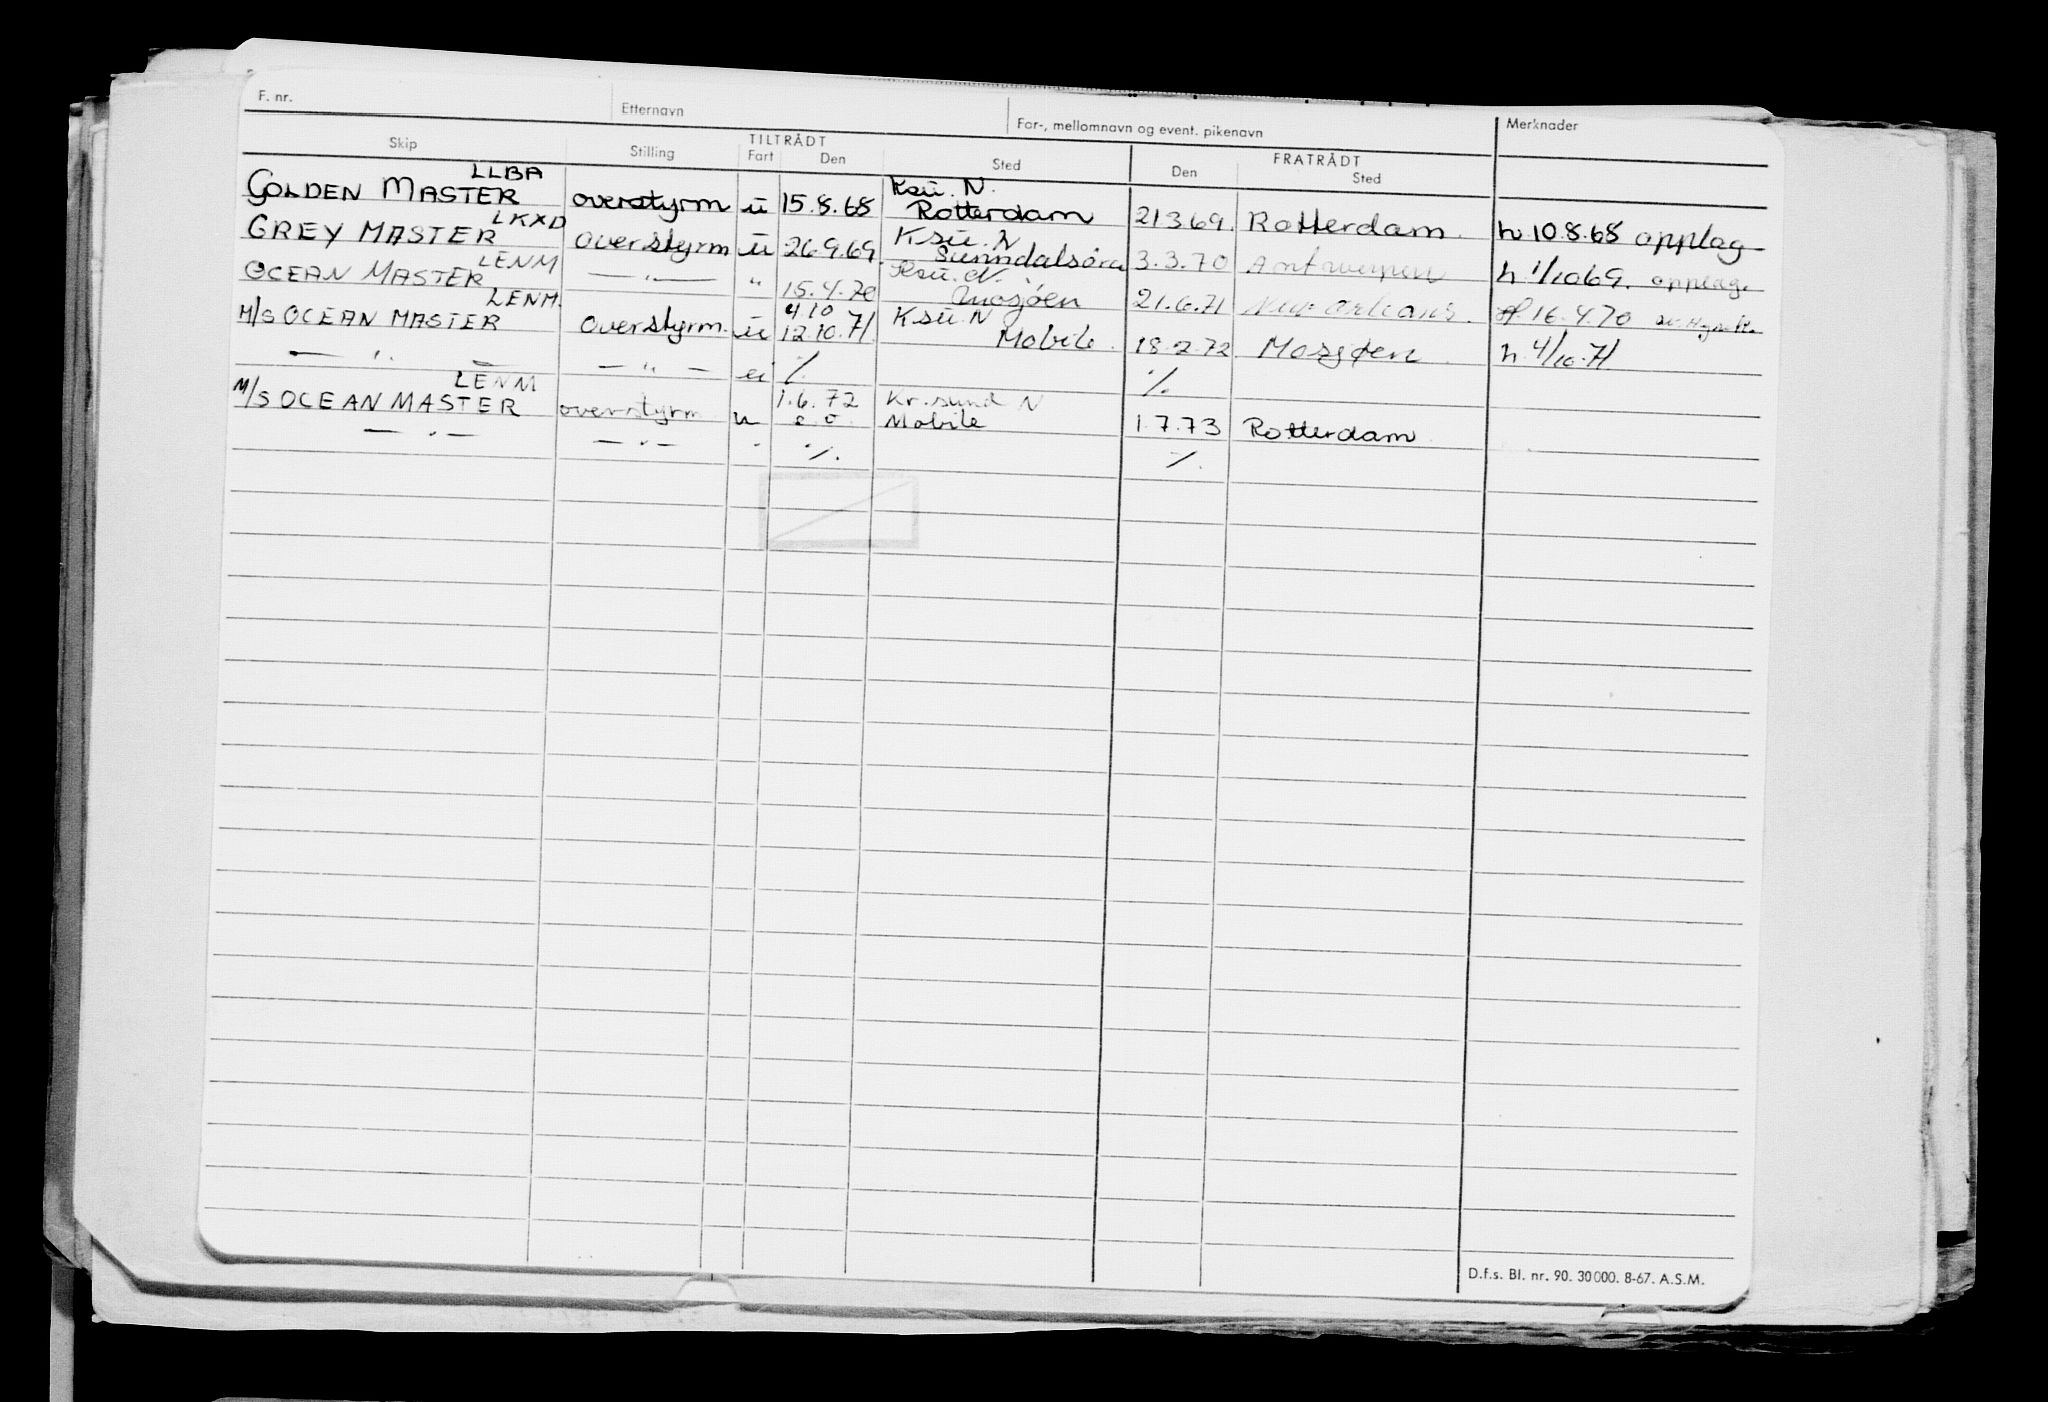 F. nr. Etternavn For-, mellomnavn og event. pikenavn Merknader
TILTRÅDT FRATRÅDT
Skip Stilling Fart Den Sted Den Sted
LLBA Ksu. N.
GOLDEN MASTER overstyrm u 15.8.68 Rotterdam 21369. Rotterdam. h 10.8.68 opplag
LKXD Ksu. N
GREY MASTER overstyrm u 26.9.69. Sunndalsøra 3.3.70 Antwerpen h 1/10 69. opplag.
LENM Ksu. N.
OCEAN MASTER — " — " 15.4.70 Mosjøen 21.6.71 New Orleans. 16.4.70
LENM. 4.10 Ksu. N
M/S OCEAN MASTER overstyrm. u 12.10.71. Mobile. 18.2.72. Mosjøen. h. 4/10.71
— " — — " — ei ·/. ·/.
LENM 1.6.72 Kr.sund N
M/S OCEAN MASTER overstyrm u Mobile 1.7.73 Rotterdam.
— " — — " — " ·/. ·/.
D.f.s. Bl. nr. 90. 30000. 8-67. A.S.M.